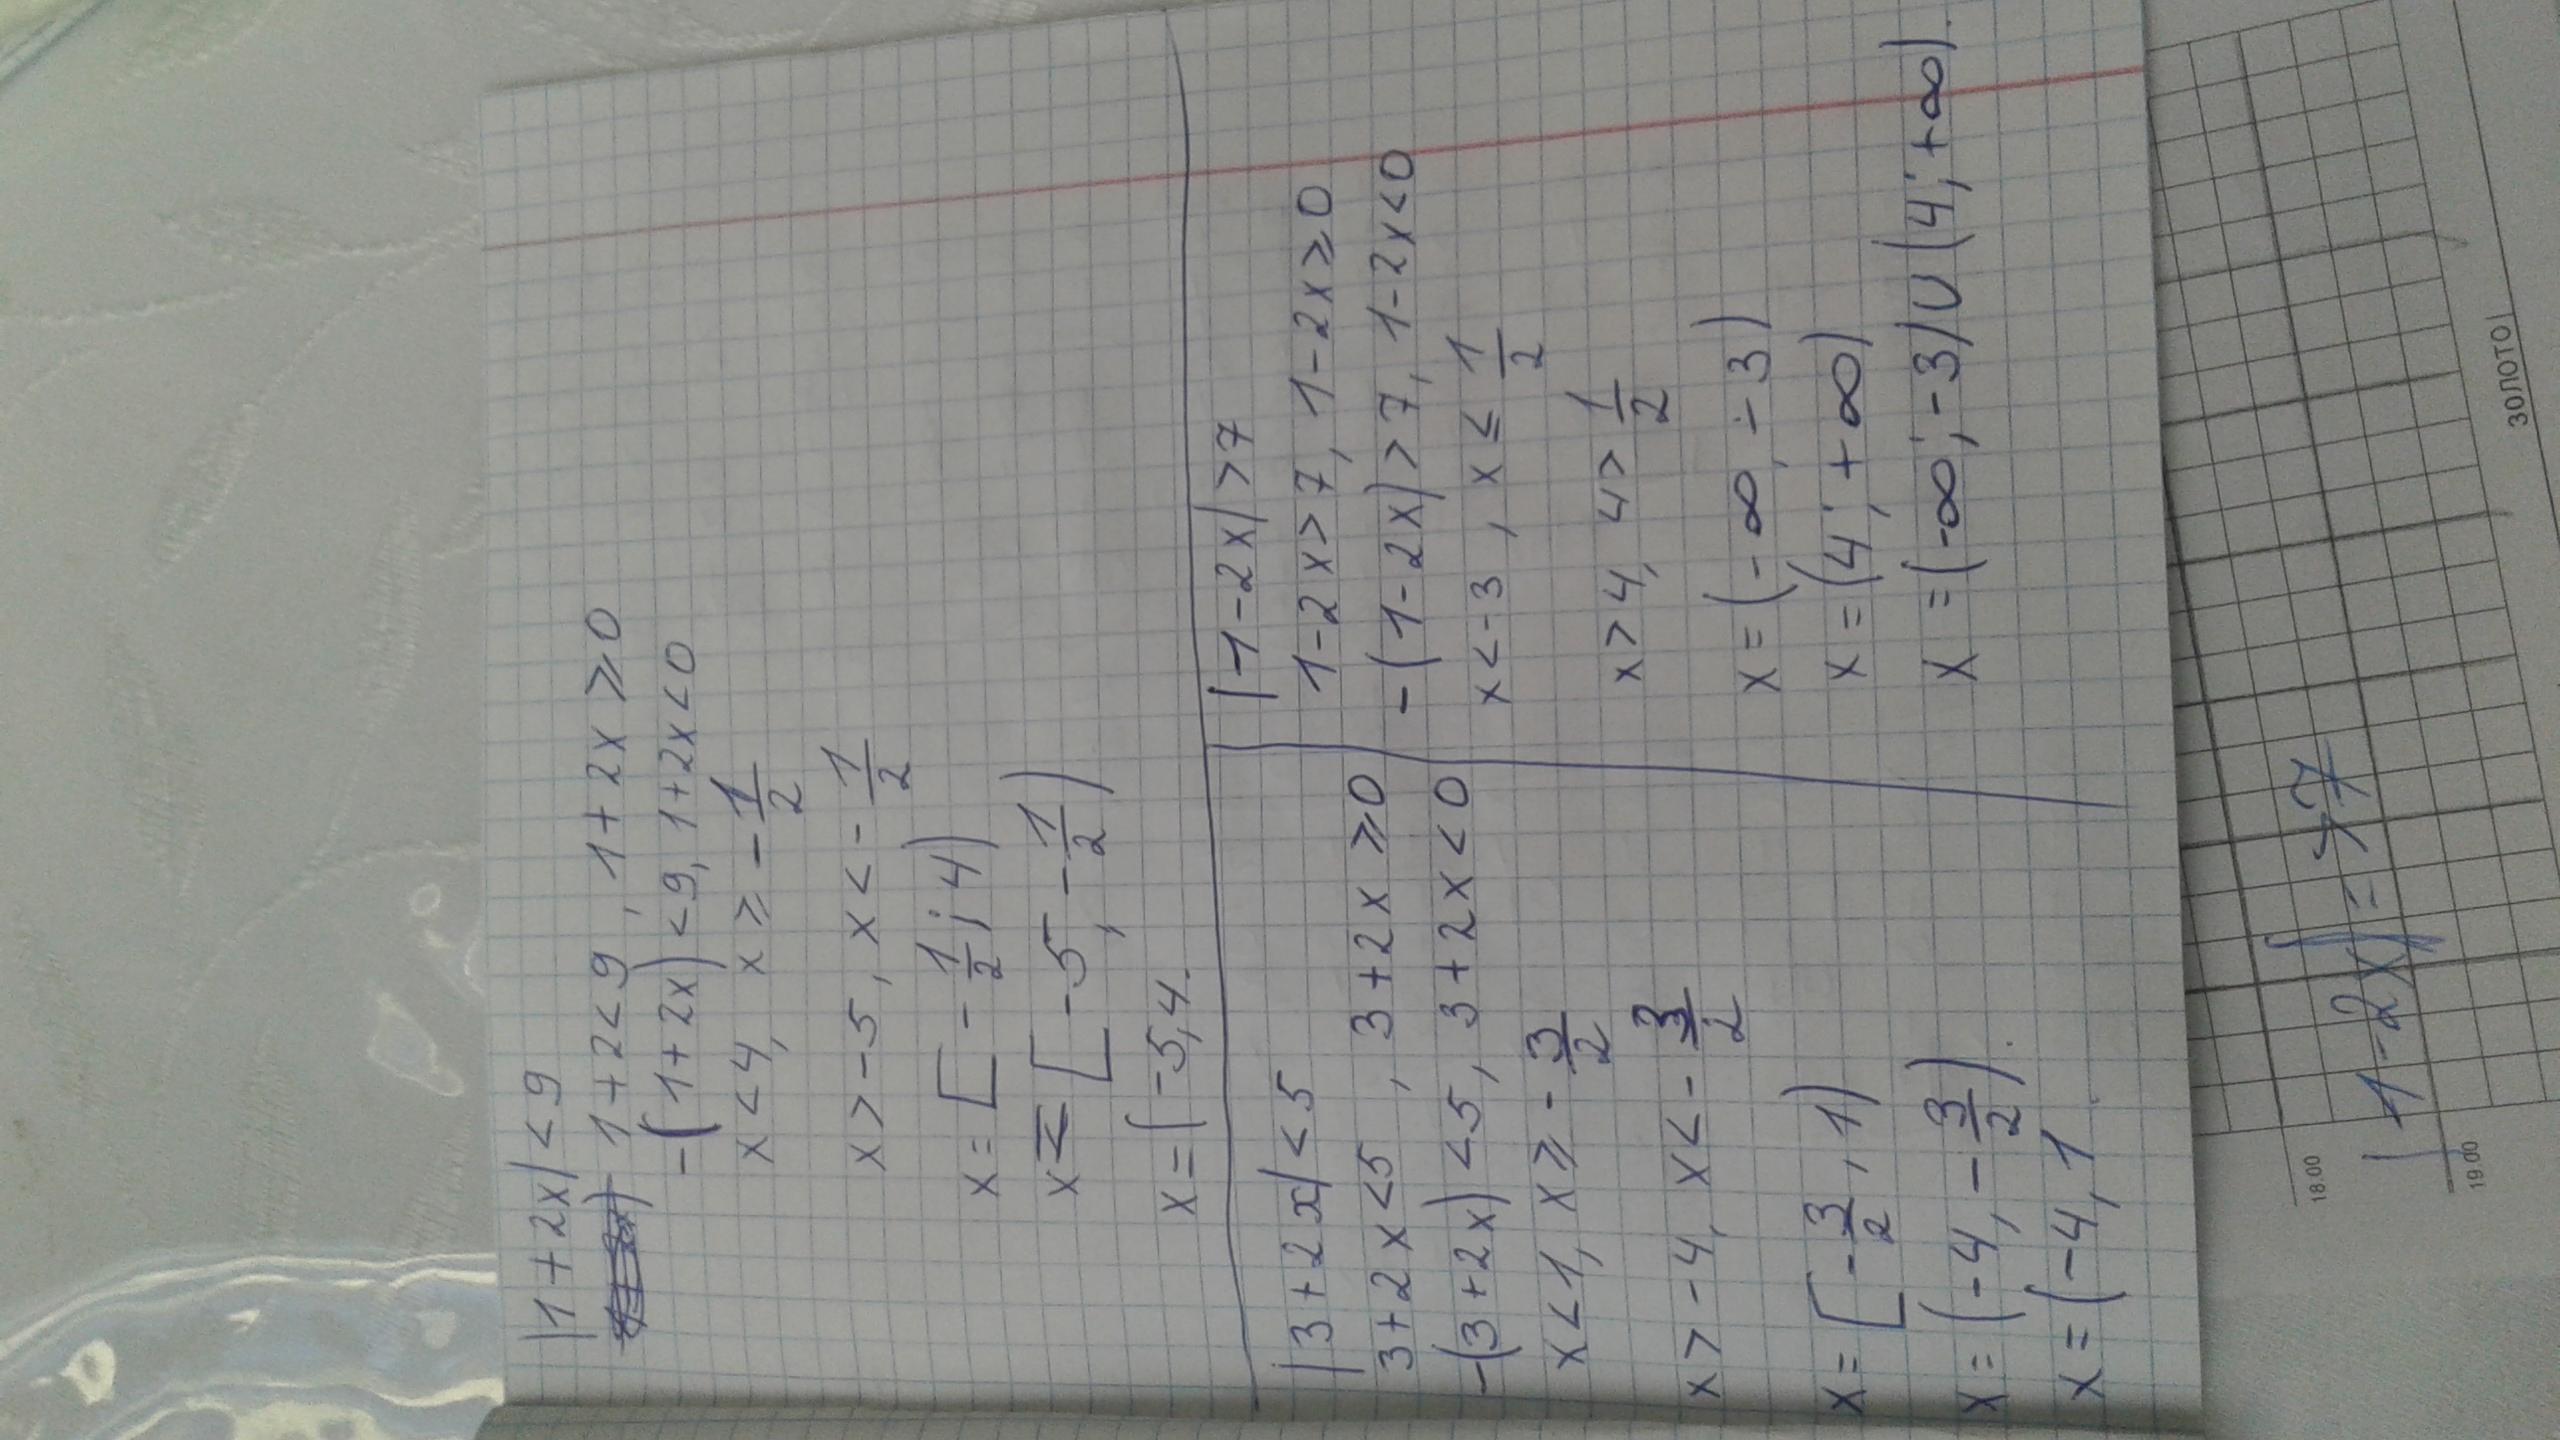 |1+2x|<9
1+2<9, 1+2x≥0
-(1+2x)<9, 1+2x<0
x<4, x≥-1/2
x>-5, x<-1/2
x=[-1/2; 4)
x=[-5, -1/2)
x=(-5,4.
|3+2x|<5
3+2x<5, 3+2x≥0
-(3+2x)<5, 3+2x<0
x<1, x≥-3/2
x>-4, x<-3/2
x=[-3/2, 1)
x=(-4, -3/2).
x=(-4, 1
|1-2x|>7
1-2x>7, 1-2x≥0
-(1-2x)>7, 1-2x<0
x<-3, x≤1/2
x>4, 4>1/2
x=(-∞, -3)
x=(4; +∞)
x=(-∞; -3)U(4; +∞).
18.00
19.00
ЗОЛОТО|